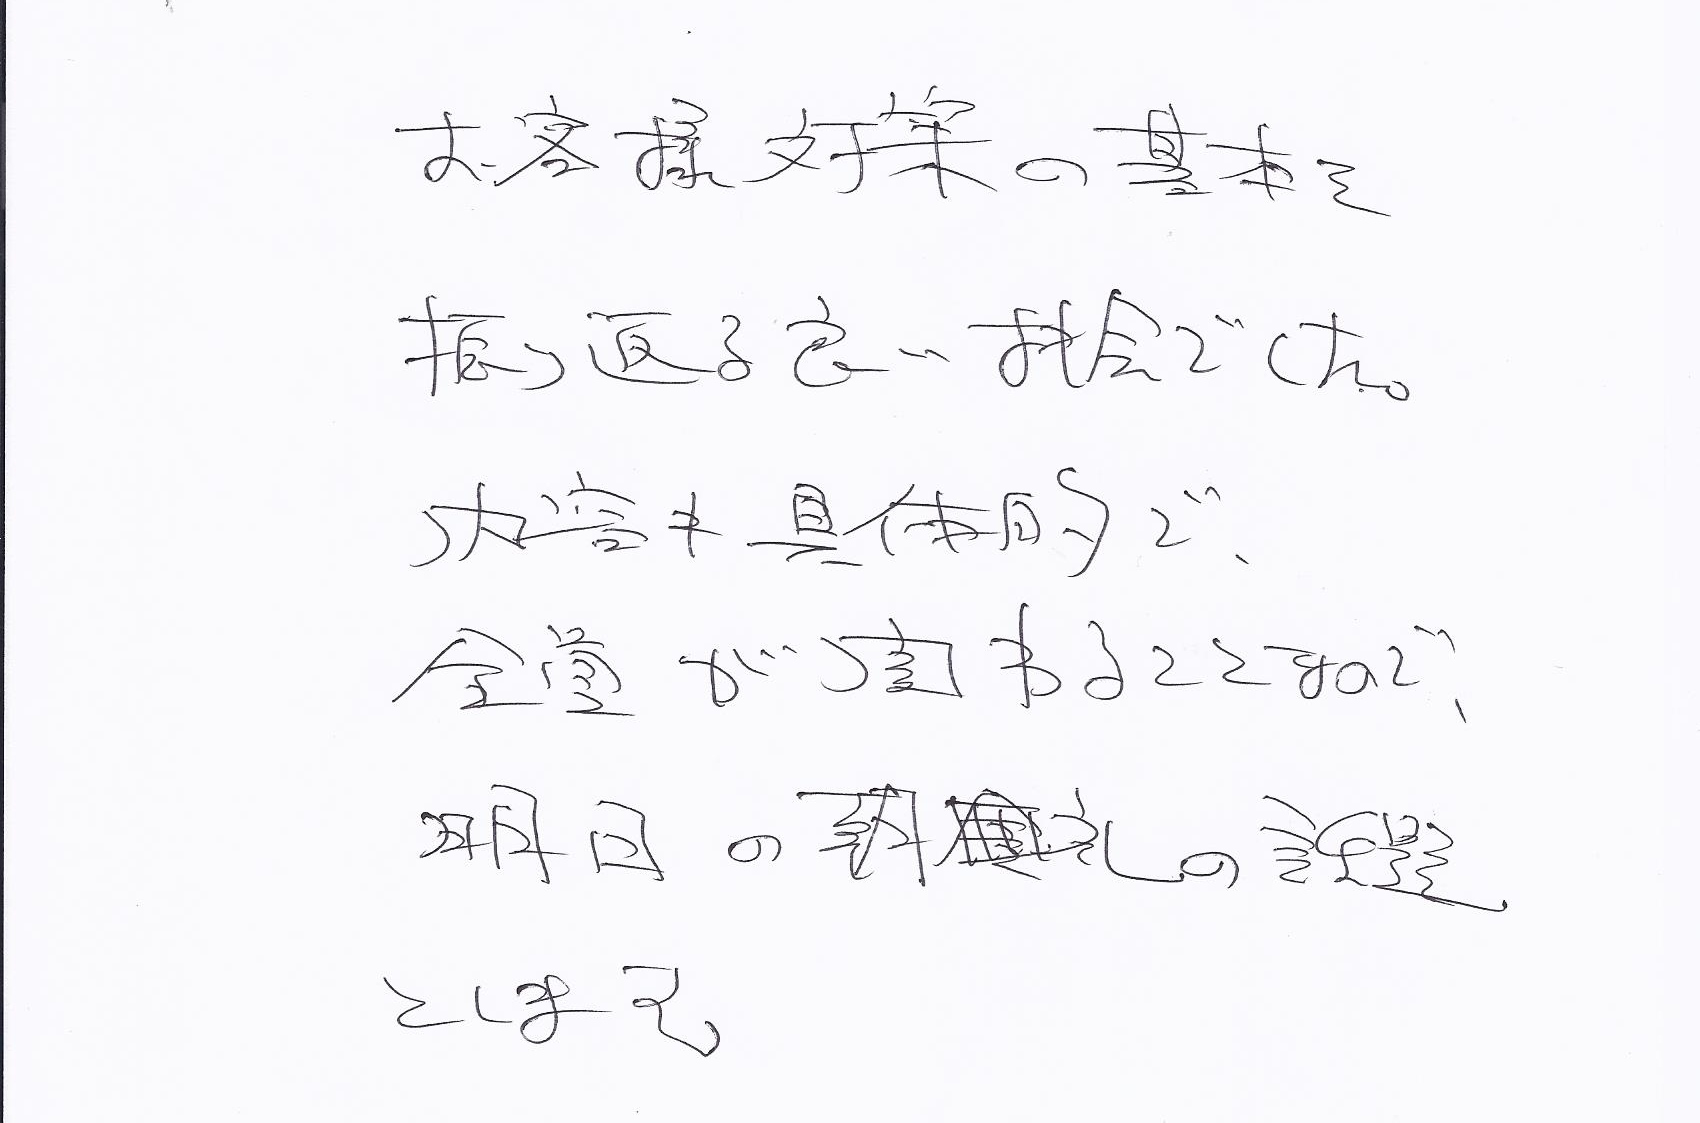 お客様対策の基本を
振り返る良い機会でした。
内容も具体的で、
全堂が面わることなので、
明日の朝礼の課題
とします。